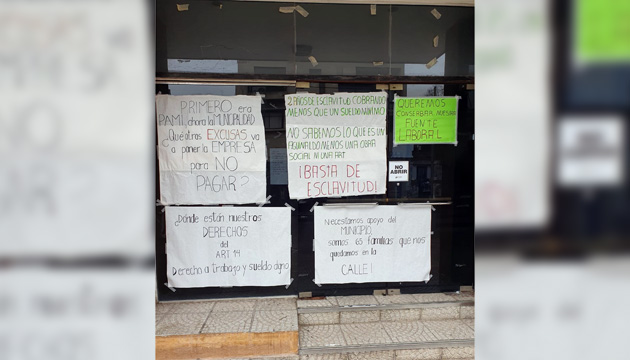 PRIMERO era
PAMI, ahora la MUNICIPALIDAD
¿Que otras EXCUSAS va
a poner la EMPRESA
para NO
PAGAR?
2 AÑOS DE ESCLAVITUD COBRANDO
MENOS QUE UN SUELDO MINIMO
NO SABEMOS LO QUE ES UN
AGUINALDO MENOS UNA OBRA
SOCIAL NI UNA ART
¡BASTA DE
ESCLAVITUD!
QUEREMOS
CONSERBAR NUESTRA
FUENTE
LABORAL
NO
ABRIR
¿Donde están nuestros
DERECHOS
del
ART 14
Derecho a trabajo y sueldo digno
Necesitamos apoyo del
MUNICIPIO,
somos 65 familias que nos
quedamos en la
CALLE!